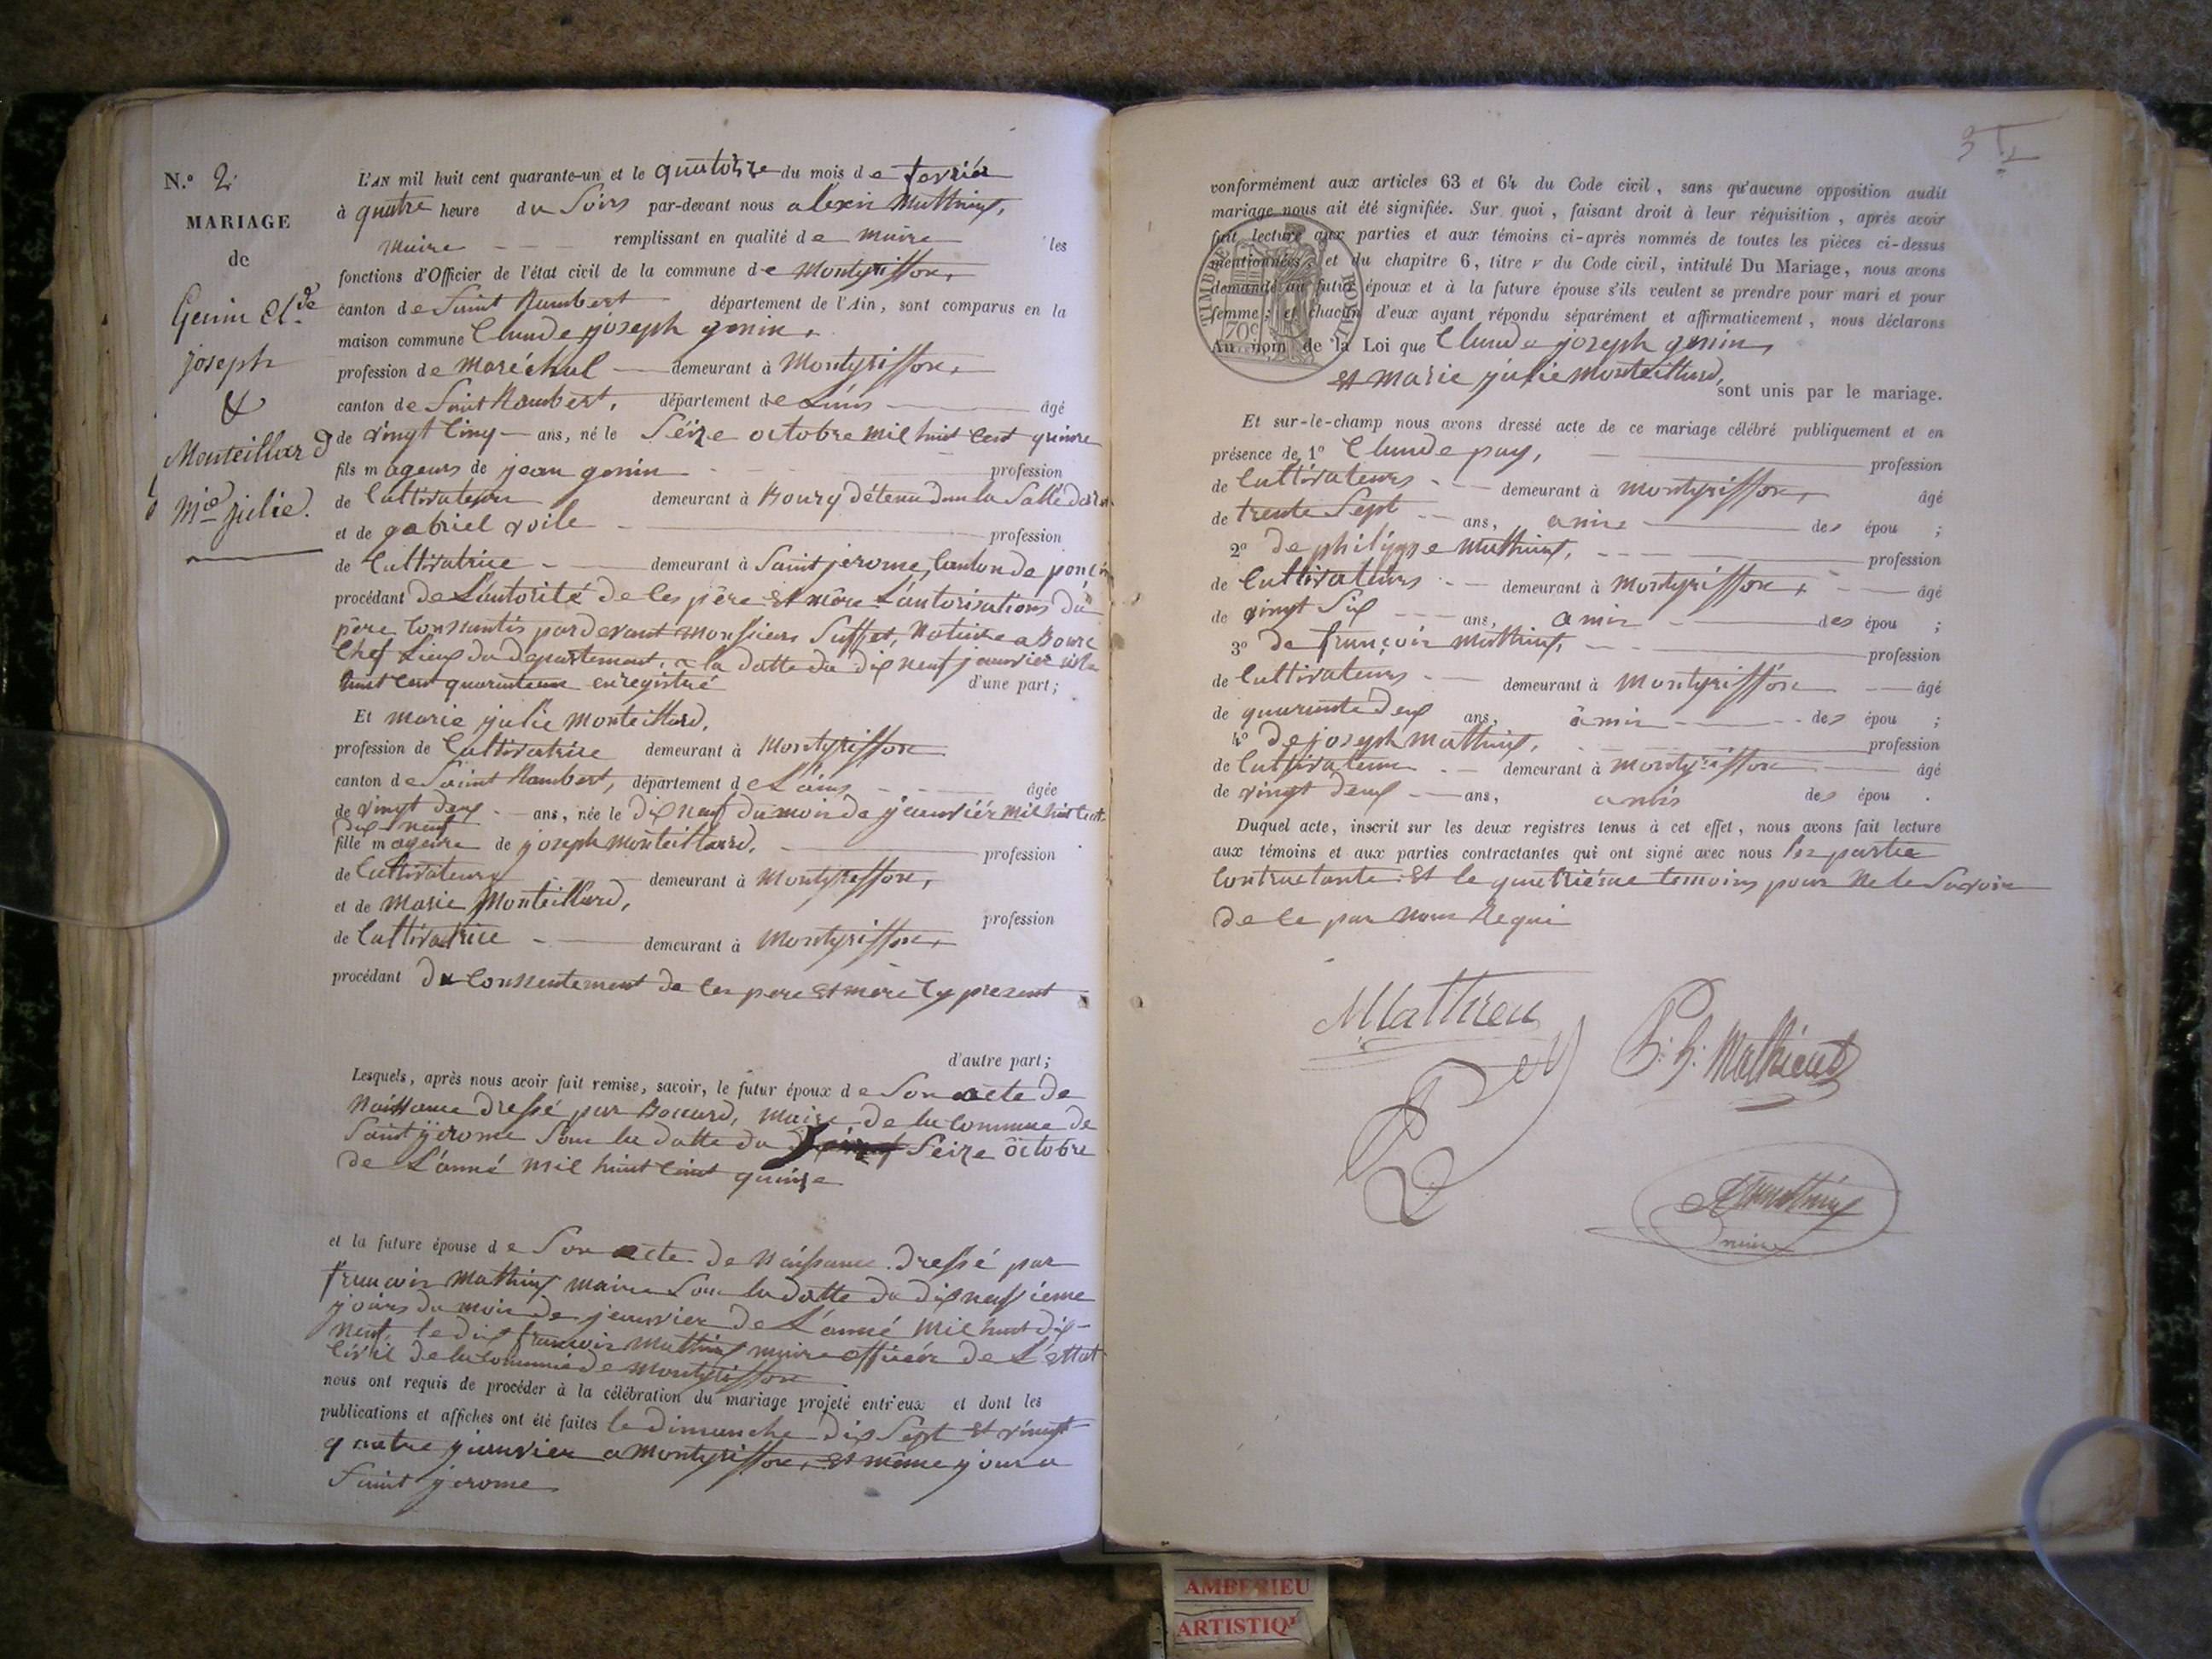 N.º 2
MARIAGE
de
Genin Cl.de
joseph
&
Monteillard
Mie julie.
L'AN mil huit cent quarante-un et le quatorze du mois de fevriér
à quatre heure du Soirs par-devant nous alexis Mathieux,
maire remplissant en qualité de maire les
fonctions d'Officier de l'état civil de la commune de Montgriffon,
canton de Saint Rambert département de l'Ain, sont comparus en la
maison commune Claude joseph genin,
profession de Maréchal demeurant à Montgriffon,
canton de Saint Rambert, département de L'ains âgé
de vingt Cinq ans, né le Séize octobre mil huit Cent quinze
fils mageurs de jean genin profession
de Cultivateur demeurant à Bourg détenu dans la Salle
et de gabriel voile profession
de Cultivatrice demeurant à Saint jerome, Canton de poncin
procédant de L'autorité de Ces père et mère L'autorisations du
père Conssantis pardevant Monsieur Suffet, Notaire a Bourg
Chef Lieux du departement, a la datte du dix neuf jeanvier mile
huit Cent quarinteun enregistré d'une part;
Et marie julie Monteillard,
profession de Cultivatrice demeurant à Montgriffon
canton de Saint Rambert, département de L'ains âgée
de vingt deux ans, née le dix neuf du mois de jeanviér mil huit Cent
dix neuf
fille mageure de joseph Monteillard, profession
de Cultivateurs demeurant à Montgriffon,
et de Marie Monteillard, profession
de Cultivatrice demeurant à Montgriffon,
procédant du Conssentement de Ces pere et mère Cy present
d'autre part;
Lesquels, après nous avoir fait remise, savoir, le futur époux de Son acte de
Naissance dressé par Bocard, Maire de la Commune de
Saint jerome Sous la datte du Seize octobre
de L'anné mil huit Cent quinze
et la future épouse de Son acte de Naissance dressé par
francois Mathieux maire Sous la datte du dix neufvieme
jours du mois de jeanvier de L'anné Mil huit dix
neuf, le dix francois Mathieux maire officiér de L'ettat
Civil de la Commune de Montgriffon
nous ont requis de procéder à la célébration du mariage projeté entr'eux et dont les
publications et affiches ont été faites le dimanche dix Sept et vingt
quatre jeanvier a Montgriffon, et même jour a
Saint jerome
conformément aux articles 63 et 64 du Code civil, sans qu'aucune opposition audit
mariage nous ait été signifiée. Sur quoi, faisant droit à leur réquisition, après avoir
fait lecture aux parties et aux témoins ci-après nommés de toutes les pièces ci-dessus
mentionnées, et du chapitre 6, titre v du Code civil, intitulé Du Mariage, nous avons
demandé au futur époux et à la future épouse s'ils veulent se prendre pour mari et pour
femme; et chacun d'eux ayant répondu séparément et affirmativement, nous déclarons
Au nom de la Loi que Claude joseph genin,
et Marie julie Monteillard, sont unis par le mariage.
TIMBRE ROYAL
70c
Et sur-le-champ nous avons dressé acte de ce mariage célébré publiquement et en
présence de 1º Claude puy, profession
de Cultivateurs demeurant à Montgriffon, âgé
de trente Sept ans, amis des épou ;
2º de philippe Mathieux, profession
de Cultivateurs demeurant à Montgriffon, âgé
de vingt Six ans, amis des épou ;
3º de françois Mathieux, profession
de Cultivateurs demeurant à Montgriffon âgé
de quarante deux ans, amis des épou ;
4º de joseph Mathieux, profession
de Cultivateur demeurant à Montgriffon âgé
de vingt deux ans, amis des épou .
Duquel acte, inscrit sur les deux registres tenus à cet effet, nous avons fait lecture
aux témoins et aux parties contractantes qui ont signé avec nous les partie
Contractante et le quatriéme temoins pour Ne le Savoir
de Ce par Nous Requi
Mathieu
Ph: Mathieux
Puy
Mathieux
maire
AMBERIEU
ARTISTIQU